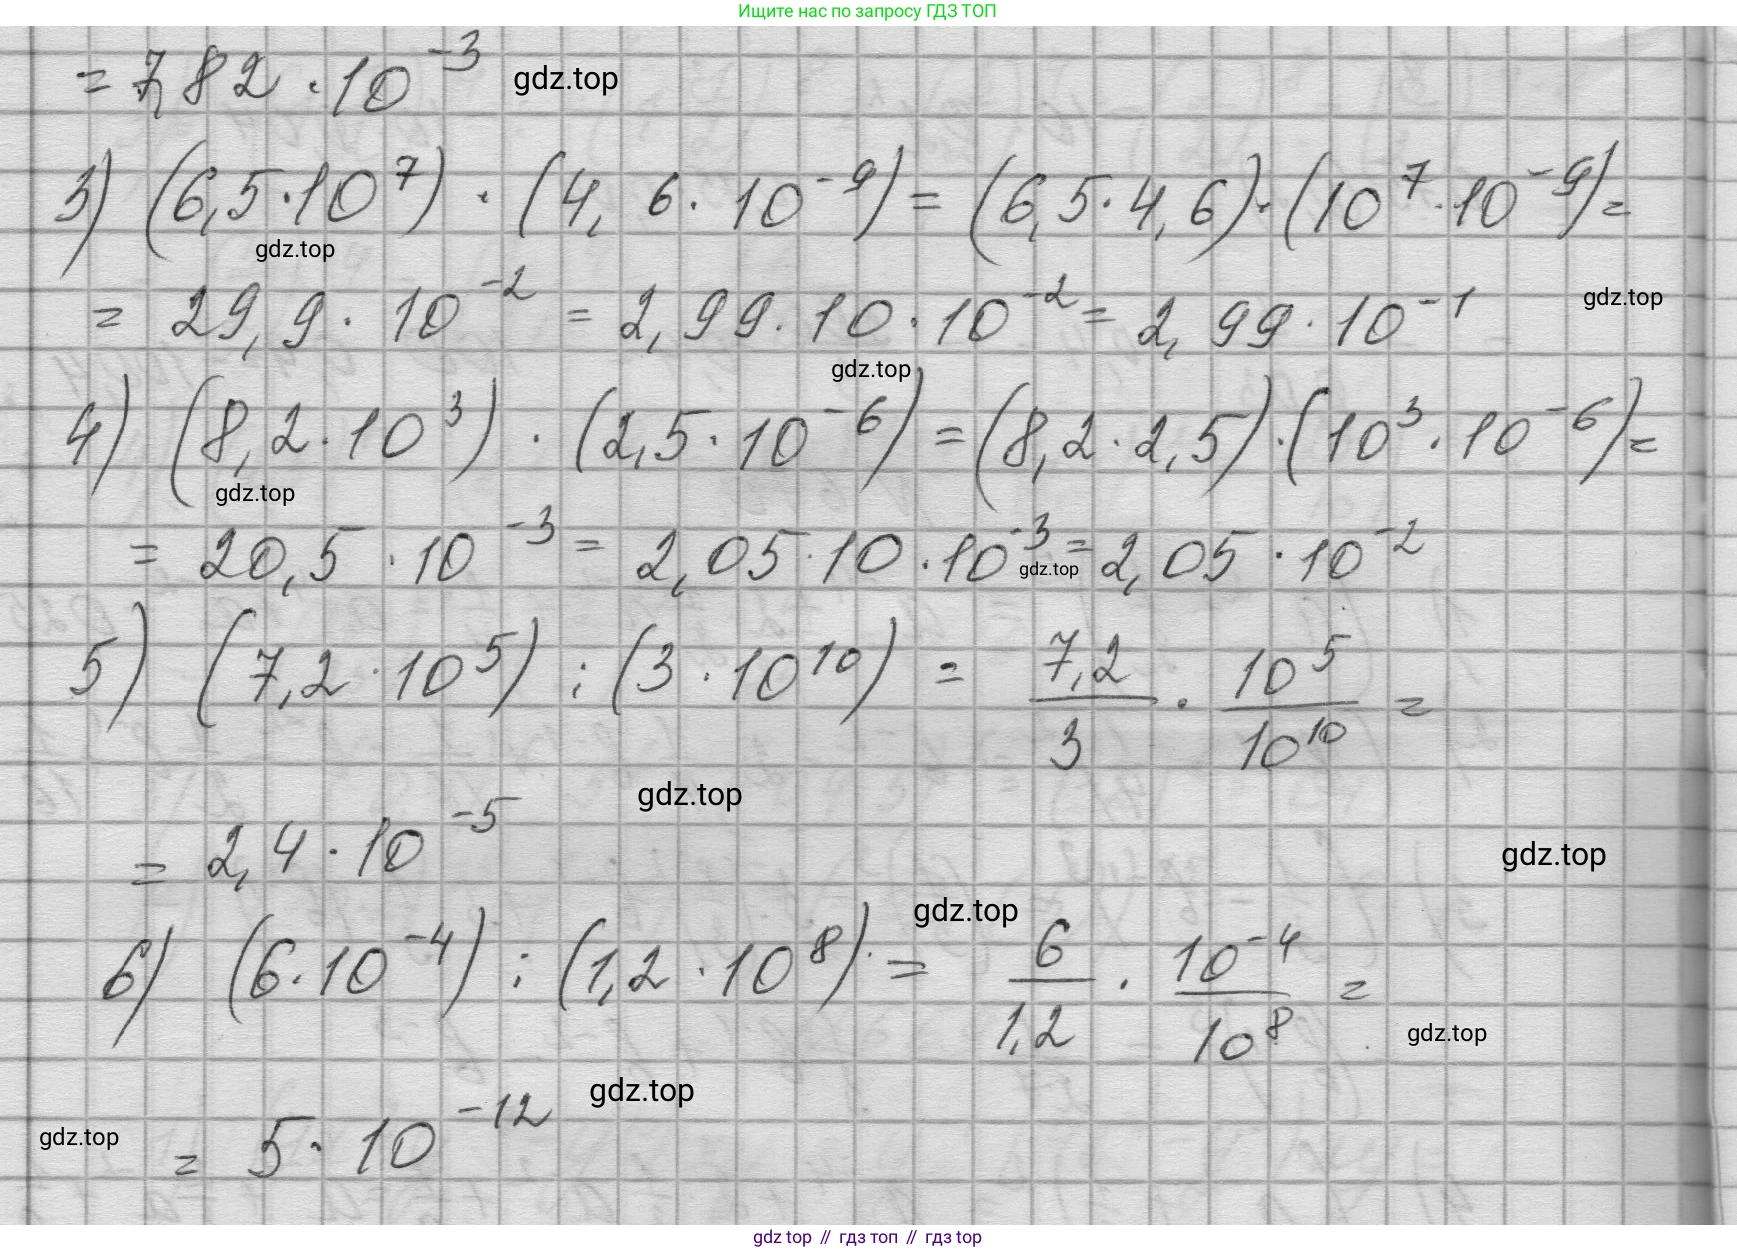 Ищите нас по запросу ГДЗ ТОП
= 7,82 · 10⁻³ gdz.top
3) (6,5 · 10⁷) · (4,6 · 10⁻⁹) = (6,5 · 4,6) · (10⁷ · 10⁻⁹) =
gdz.top
= 29,9 · 10⁻² = 2,99 · 10 · 10⁻² = 2,99 · 10⁻¹ gdz.top
gdz.top
4) (8,2 · 10³) · (2,5 · 10⁻⁶) = (8,2 · 2,5) · (10³ · 10⁻⁶) =
gdz.top
= 20,5 · 10⁻³ = 2,05 · 10 · 10⁻³ = 2,05 · 10⁻²
gdz.top
5) (7,2 · 10⁵) : (3 · 10¹⁰) = 7,2/3 · 10⁵/10¹⁰ =
gdz.top
= 2,4 · 10⁻⁵ gdz.top
gdz.top
6) (6 · 10⁻⁴) : (1,2 · 10⁸) = 6/1,2 · 10⁻⁴/10⁸ =
gdz.top
gdz.top
gdz.top = 5 · 10⁻¹²
gdz top // гдз топ // гдз top